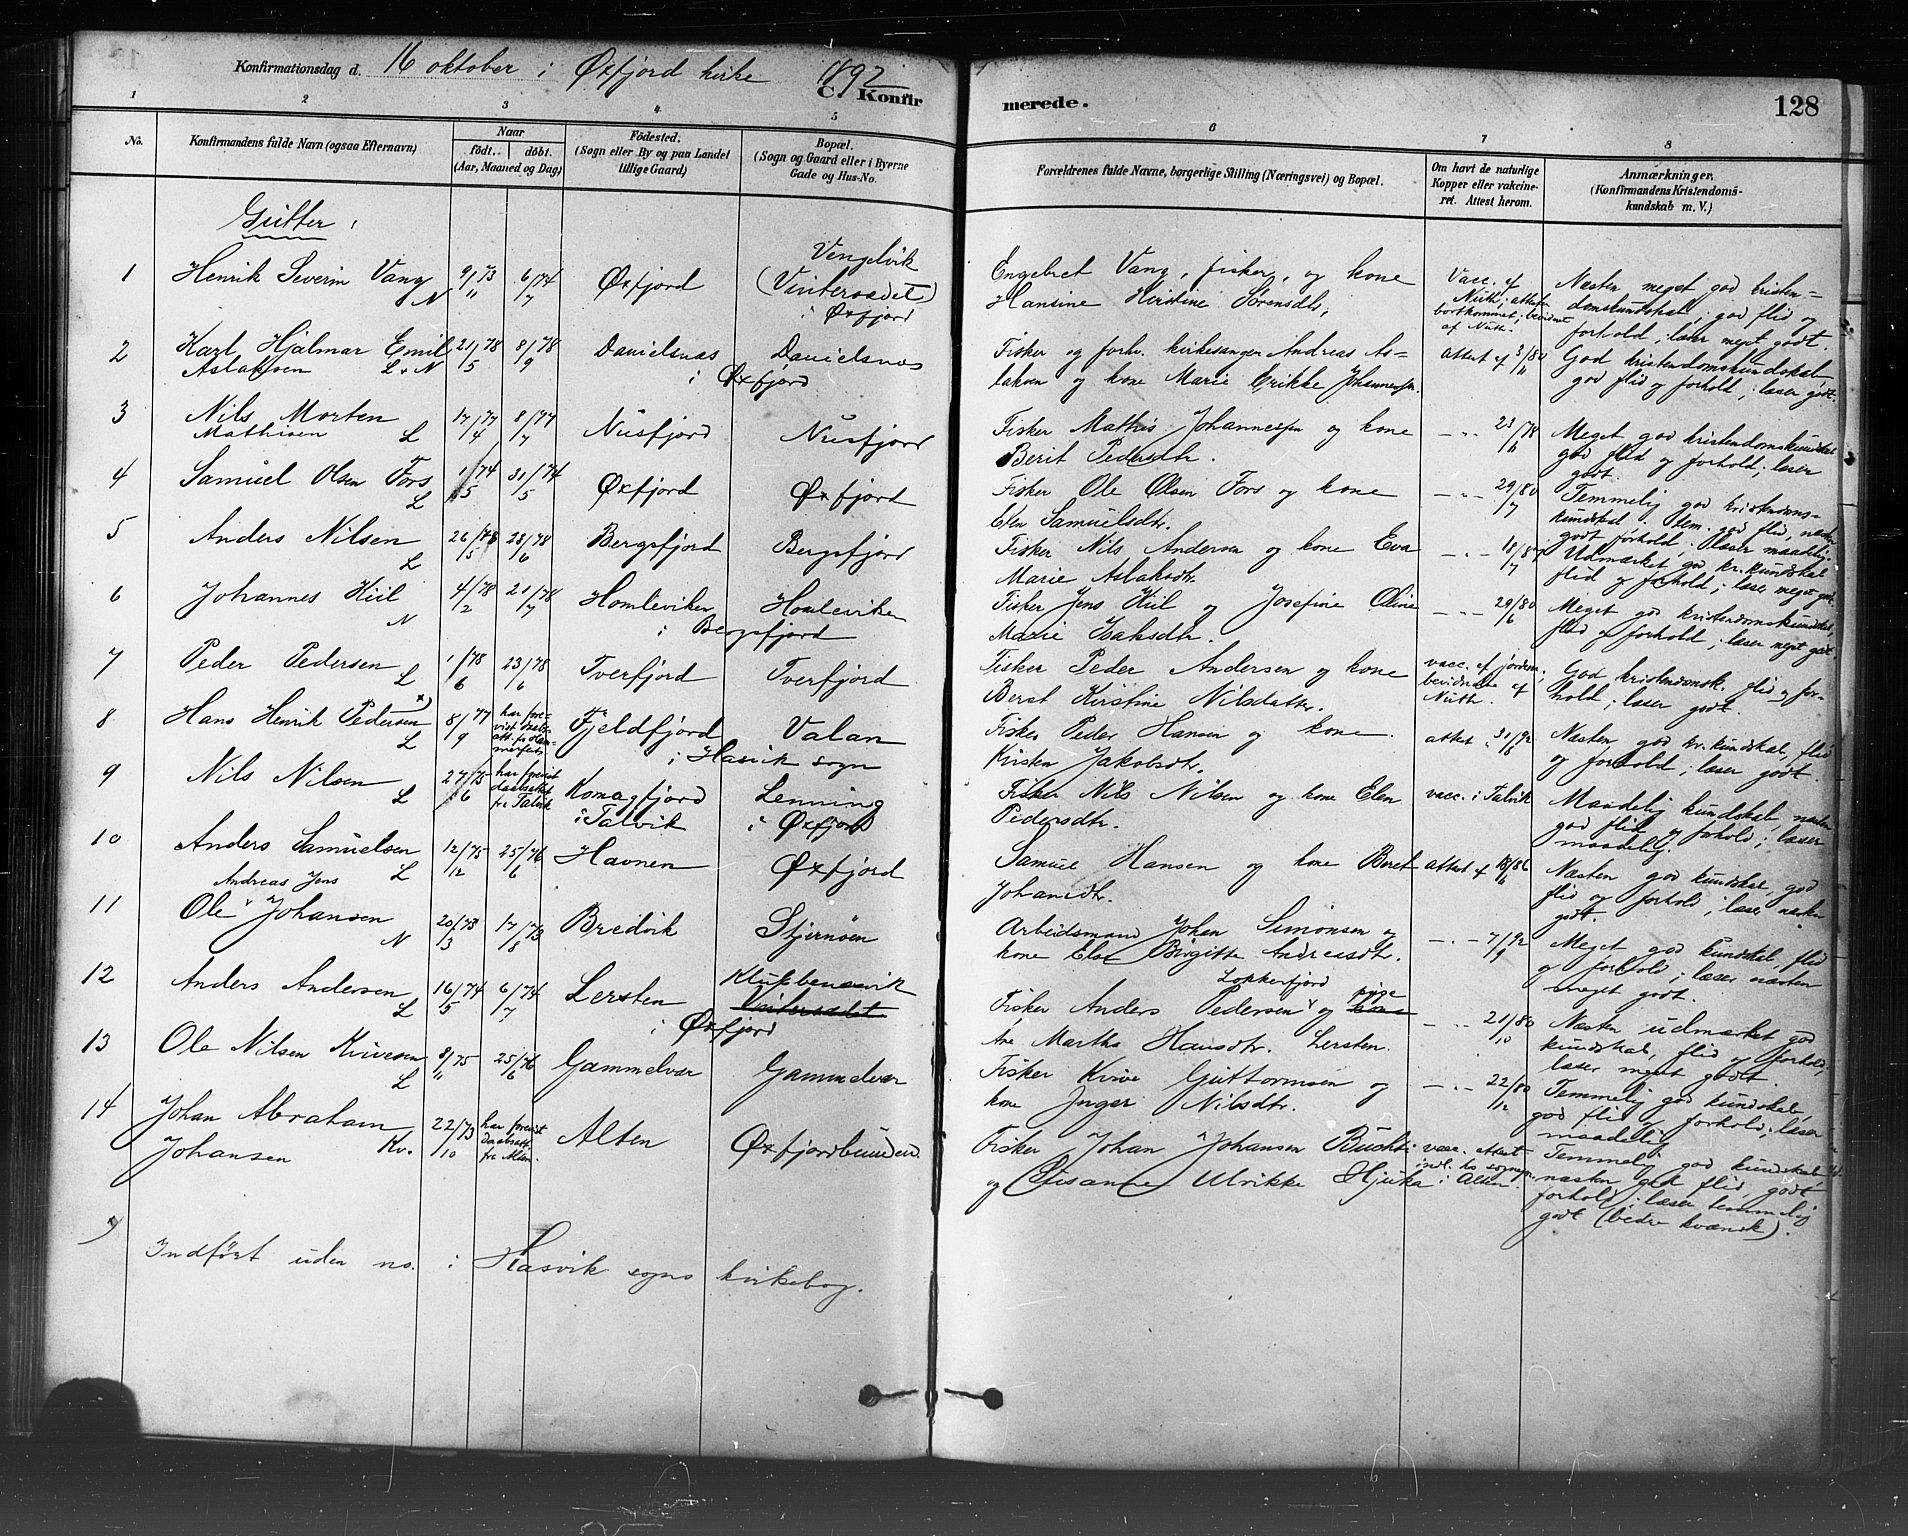 Konfirmationsdag d. 16 oktober i Øxfjord kirke 1892
C. Konfirmerede.
128
1 2 3 4 5 6 7 8
No.
Konfirmandens fulde Navn (ogsaa Efternavn)
Naar
födt. döbt.
(Aar, Maaned og Dag)
Födested.
(Sogn eller By og paa Landet
tillige Gaard)
Bopæl.
(Sogn og Gaard eller i Byerne
Gade og Hus-No.
Forældrenes fulde Navne, borgerlige Stilling (Næringsvei) og Bopæl.
Om havt de naturlige
Kopper eller vakcine-
ret. Attest herom.
Anmærkninger.
(Konfirmandens Kristendoms-
kundskab m. V.)
Gutter.
1 Henrik Severin Vang N 9/11 73 6/7 74 Øxfjord Vengelvik (Vinteraadet) i Øxfjord
Engebret Vang, fisker, og kone
Hansine Kirstine Sørensdtr,
Vacc. ef Nuth; attesten bortkommet; bevidnet af Nuth.
Næsten meget god kristen-
domskundskab; god flid og
forhold; læser meget godt.
2 Karl Hjalmar Emil Aslaksen L+N 21/5 78 8/9 78 Danielsnæs Danielsnæs i Øxfjord
Fisker og forh. kirkesanger Andreas As-
laksen og kone Marie Erikke Johannesdtr.
attest ef 3/11 80
God kristendomskundskab
god flid og forhold; læser godt.
3 Nils Morten Mathisen L 17/4 77 8/7 77 Nusfjord Nusfjord
Fisker Mathis Johannessen og kone
Berit Pedersdtr.
— " — 23/6 78
Meget god kristendomskundskab
god flid og forhold; læser
godt.
4 Samuel Olsen Fors L 1/5 74 31/5 74 Øxfjord Øxfjord
Fisker Ole Olsen Fors og kone
Elen Samuelsdtr.
— " — 29/7 80
Temmelig god kristendoms-
kundskab. tem. god flid, næsten
godt forhold; læser maadelig.
5 Anders Nilsen L 26/5 78 23/6 78 Bergsfjord Bergsfjord
Fisker Nils Andersen og kone Eva
Marie Aslaksdtr.
— " — 18/7
Udmærket god kr.kundskab
flid og forhold; læser meget godt.
6 Johannes Kiil N 4/2 78 21/7 78 Homleviken Homleviken i Bergsfjord
Fisker Jens Kiil og Josefine Oline
Marie Isaksdtr.
— " — 29/6 80
Meget god kristendomskundskab,
flid og forhold; læser meget godt.
7 Peder Pedersen L 1/6 78 23/6 78 Tverfjord Tverfjord
Fisker Peder Andersen og kone
Beret Kirstine Nilsdatter.
vacc. ef jordem. bevidnelse ef Nuth.
God kristendomsk. flid og for-
hold; læser godt.
8 Hans Henrik Pedersen x) L 8/9 77 har forevist daabsatt. fr Hammerfest Fjeldfjord Valan i Hasvik sogn
Fisker Peder Hansen og kone
Kirsten Jakobsdtr.
attest " 31/6 92
Næsten god kr.kundskab, flid
og forhold; læser godt.
9 Nils Nilsen L 27/6 75 har forevist daabsattest fr Talvik Komagfjord i Talvik Lenning i Øxfjord
Fisker Nils Nilsen og kone Elen
Pedersdtr.
vacc. i Talvik
Maadelig kundskab, næsten
god flid og forhold; læser
maadelig.
10 Anders Samuelsen L 12/12 75 25/6 76 Havnen Øxfjord
Samuel Hansen og kone Beret
Johansdtr.
attest ef 18/6 86
Næsten god kundskab, god
flid og forhold; læser næsten
godt.
11 Ole Andreas Jens Johansen N 20/3 73 17/8 73 Bredvik Stjernøen
Arbeidsmand Johan Simonsen og
kone Else Birgitte Andreasdtr.
— " — 7/9 92
Meget god kundskab, flid
og forhold; læser næsten
meget godt.
12 Anders Andersen L 16/5 74 6/7 74 Lersten Klubbenesvik Vinteraadet i Øxfjord
Fisker Anders Pedersen Lokkerfjord og kone pige
Ane Marthe Hansdtr. Lersten.
— " — 21/10 80
Næsten udmærket god
kundskab, flid og forhold;
læser meget godt.
13 Ole Nilsen Kvivesen L 8/11 75 25/6 76 Gammelvær Gammelvær
Fisker Kvive Guttormsen og
kone Inger Nilsdtr.
— " — 22/12 80
Temmelig god kundskab,
god flid og forhold; læser
maadelig.
14 Johan Abraham Johansen Kv. 22/10 73 har forevist Daabsattest fr. Alten. Alten Øxfjordbunden
Fisker Johan Johansen
og Susanne Ulrikke i Alten.
vacc. attest
Temmelig god kundskab
næsten god flid, godt
forhold; læser temmelig
godt (bedre kvænsk).
x) Indført uden no. i Hasvik sogns kirkebog.